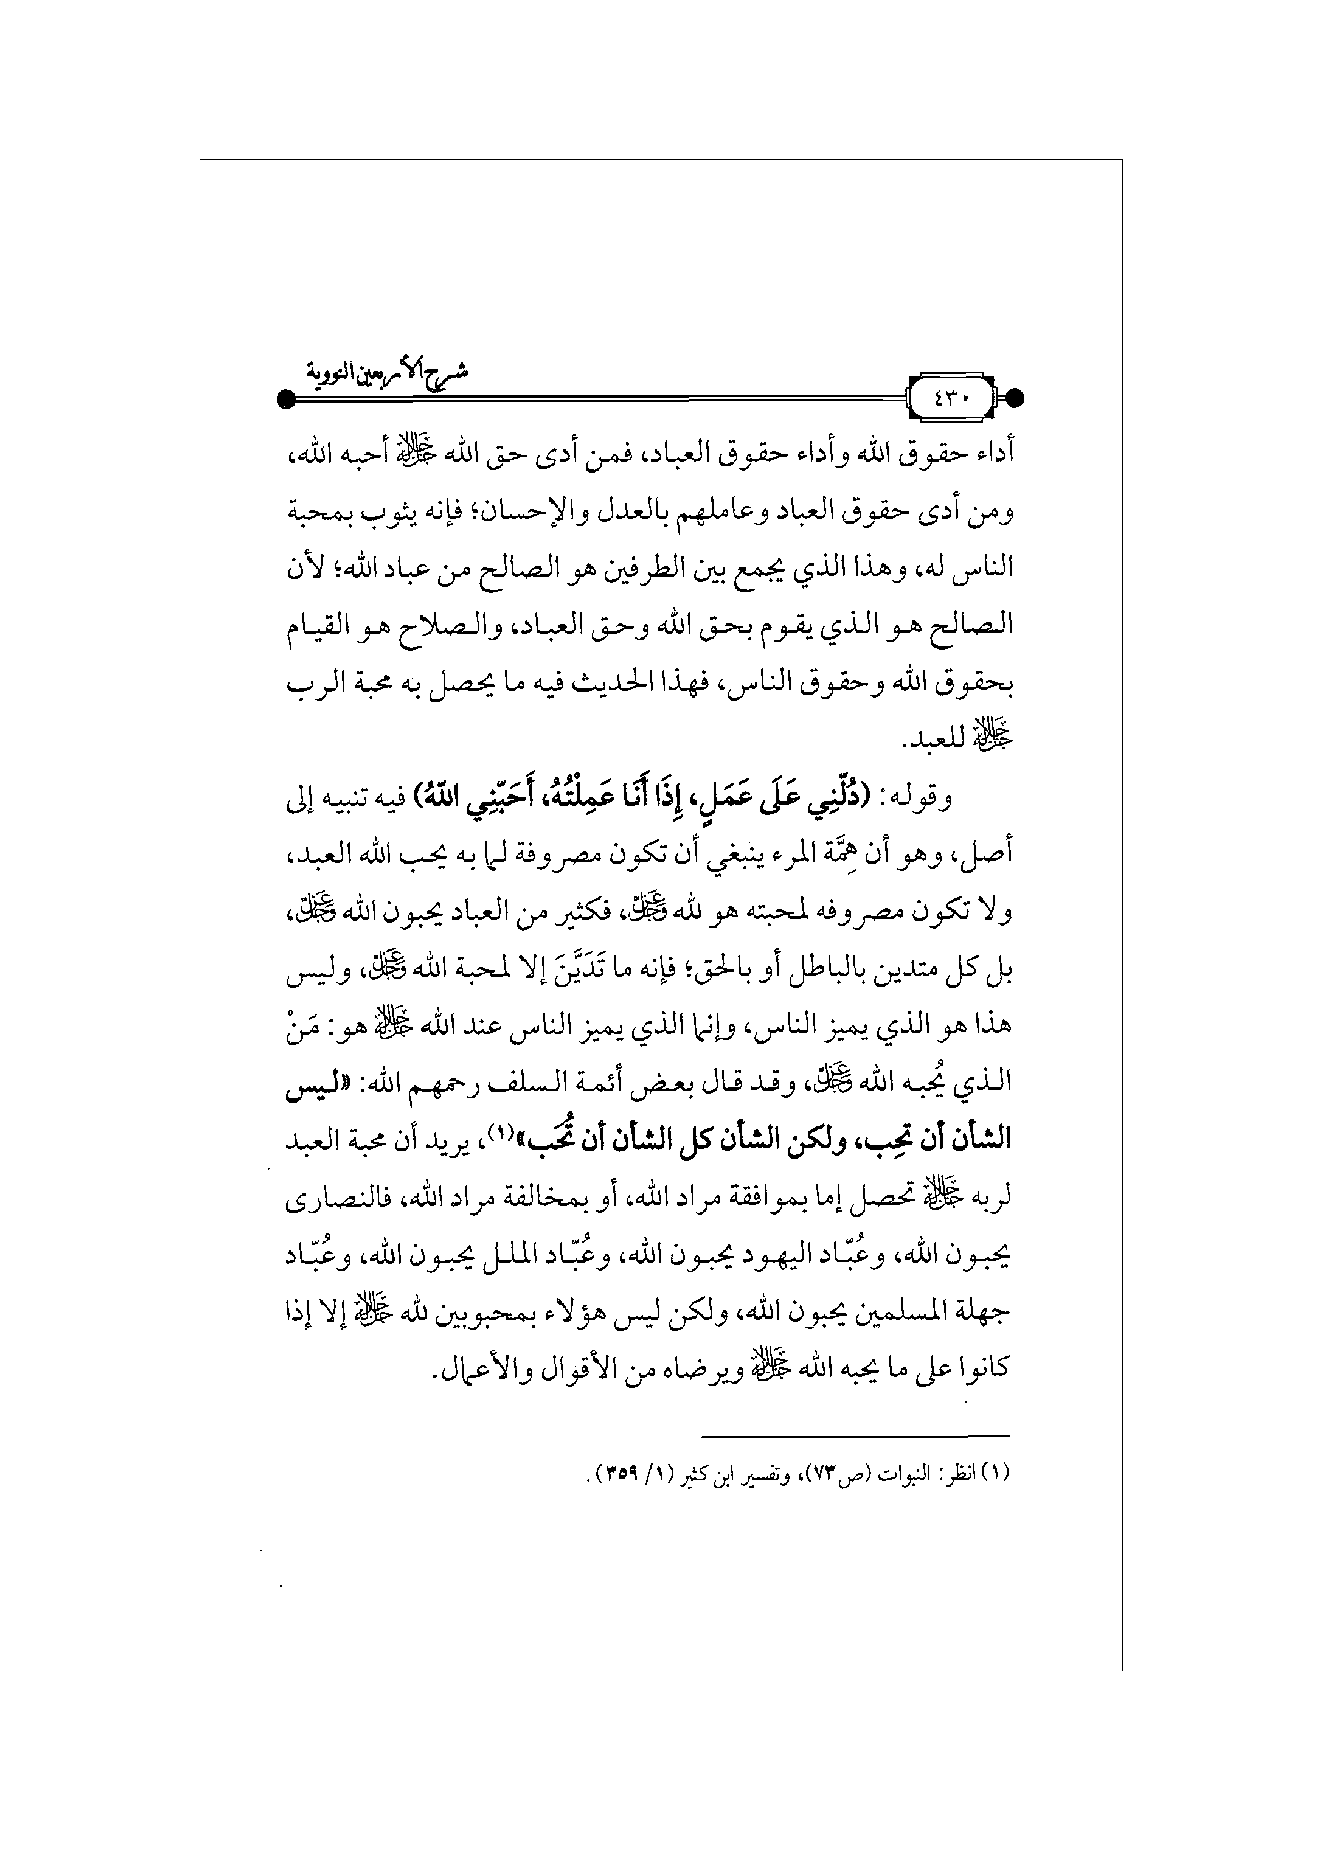 شرح الأربعين النووية
٤٣٠
أداء حقوق الله وأداء حقوق العباد، فمن أدى حق الله ﷻ أحبه الله،
ومن أدى حقوق العباد وعاملهم بالعدل والإحسان؛ فإنه يثوب بمحبة
الناس له، وهذا الذي يجمع بين الطرفين هو الصالح من عباد الله؛ لأن
الصالح هو الذي يقوم بحق الله وحق العباد، والصلاح هو القيام
بحقوق الله وحقوق الناس، فهذا الحديث فيه ما يحصل به محبة الرب
ﷻ للعبد.
وقوله: (دُلَّنِي عَلَى عَمَلٍ، إِذَا أَنَا عَمِلْتُهُ، أَحَبَّنِي اللهُ) فيه تنبيه إلى
أصل، وهو أن هِمَّة المرء ينبغي أن تكون مصروفة لما به يحب الله العبد،
ولا تكون مصروفه لمحبته هو لله عَزَّ وَجَلَّ، فكثير من العباد يحبون الله عَزَّ وَجَلَّ،
بل كل متدين بالباطل أو بالحق؛ فإنه ما تَدَيَّنَ إلا لمحبة الله عَزَّ وَجَلَّ، وليس
هذا هو الذي يميز الناس، وإنما الذي يميز الناس عند الله ﷻ هو: مَنْ
الذي يُحبه الله عَزَّ وَجَلَّ، وقد قال بعض أئمة السلف رحمهم الله: «ليس
الشأن أن تُحِب، ولكن الشأن كل الشأن أن تُحَب»(١)، يريد أن محبة العبد
لربه ﷻ تحصل إما بموافقة مراد الله، أو بمخالفة مراد الله، فالنصارى
يحبون الله، وعُبَّاد اليهود يحبون الله، وعُبَّاد الملل يحبون الله، وعُبَّاد
جهلة المسلمين يحبون الله، ولكن ليس هؤلاء بمحبوبين لله ﷻ إلا إذا
كانوا على ما يحبه الله ﷻ ويرضاه من الأقوال والأعمال.
(١) انظر: النبوات (ص٧٣)، وتفسير ابن كثير (١/ ٣٥٩).